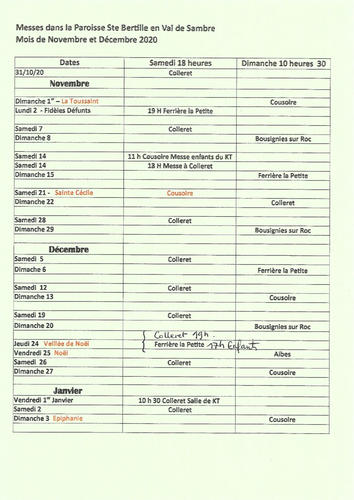 Messes dans la Paroisse Ste Bertille en Val de Sambre
Mois de Novembre et Décembre 2020
Dates Samedi 18 heures Dimanche 10 heures 30
31/10/20 Colleret
Novembre
Dimanche 1er – La Toussaint Cousolre
Lundi 2 - Fidèles Défunts 19 H Ferrière la Petite
Samedi 7 Colleret
Dimanche 8 Bousignies sur Roc
Samedi 14 11 h Cousolre Messe enfants du KT
Samedi 14 18 H Messe à Colleret
Dimanche 15 Ferrière la Petite
Samedi 21 - Sainte Cécile Cousolre
Dimanche 22 Colleret
Samedi 28 Colleret
Dimanche 29 Bousignies sur Roc
Décembre
Samedi 5 Colleret
Dimache 6 Ferrière la Petite
Samedi 12 Colleret
Dimanche 13 Cousolre
Samedi 19 Colleret
Dimanche 20 Bousignies sur Roc
Colleret 19h.
Jeudi 24 Veillée de Noël Ferrière la Petite 17h Enfants
Vendredi 25 Noël Aibes
Samedi 26 Colleret
Dimanche 27 Cousolre
Janvier
Vendredi 1er Janvier 10 h 30 Colleret Salle de KT
Samedi 2 Colleret
Dimanche 3 Epiphanie Cousolre